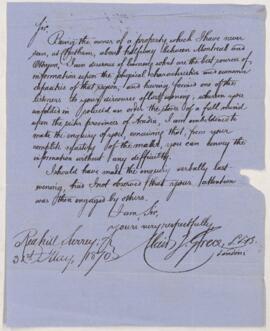 Sir,
Being the owner of a property which I have never
seen, at Chatham, about halfway between Montreal and
Ottawa, I am desirous of learning what are the best sources of
information upon the physical characteristics and economic
capacities of that region, and having formed one of the
listeners to your discourse after evening, wherein you
upon the sister province of Acadia, I am emboldened to
make the enquiry of you, conceiving that, from your
complete mastery of the matter, you can convey the
information without any difficulty.
I should have made the enquiry verbally last
evening, had I not observed that your attention
was then engaged by others.
I am Sir,
Yours very respectfully,
Redhill Surrey,
May, 1870
London